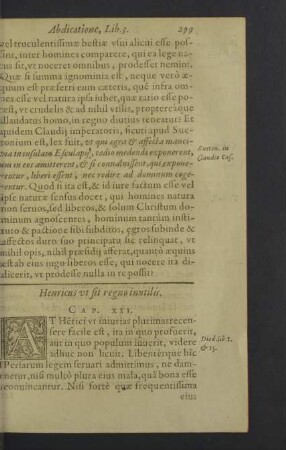 Abdicatione, Lib. 3. 299
vel truculentissimæ bestiæ vsui alicui esse pos-
sint, inter homines comparere, qui ea lege na-
tus sit, vt noceret omnibus, prodesset nemini.
Quæ si summa ignominia est, neque verò æ-
quum est præferri eum cæteris, quẽ infra om-
nes esse vel natura ipsa iubet, quæ ratio esse po-
test, vt crudelis & ad nihil vtilis, propterea que
illaudatus homo, in regno diutius teneatur? Et
quidem Claudij imperatoris, sicuti apud Sue-
tonium est, lex fuit, vt qui ægra & affecta manci-
pia in insulam Esculapij, tædio medendi exponerent,
eum in eos amitterent, & si conualuissent qui expone-
rentur, liberi essent, nec redire ad dominum coge-
rentur. Quod si ita est, & id iure factum esse vel
ipse naturæ sensus docet, qui homines natura
non seruos, sed liberos, & solum Christum do-
minum agnoscentes, hominum tantùm insti-
tuto & pactione sibi subditos, egros subinde &
affectos durè suo principatu sic relinquat, vt
nihil opis, nihil præsidij afferat, quantò æquius
est ab eius iugo liberos esse, qui nocere ita di-
dicerit, vt prodesse nulla in re possit?
Sueton. in
Claudio Cæs.
Henricus vt sit regno inutilis.
CAP. XXI.
AT Hẽrici vt iniurias plurimas recen-
sere facile est, ita in quo profuerit,
aut in quo populum iuuerit, videre
adhuc non licuit. Libenter que hîc
Persarum legem seruari admittimus, ne dam-
netur, nisi multò plura eius mala, quã bona esse
conuincantur. Nisi fortè quæ frequentissima
Diod. lib. 2.
& 15.
eius